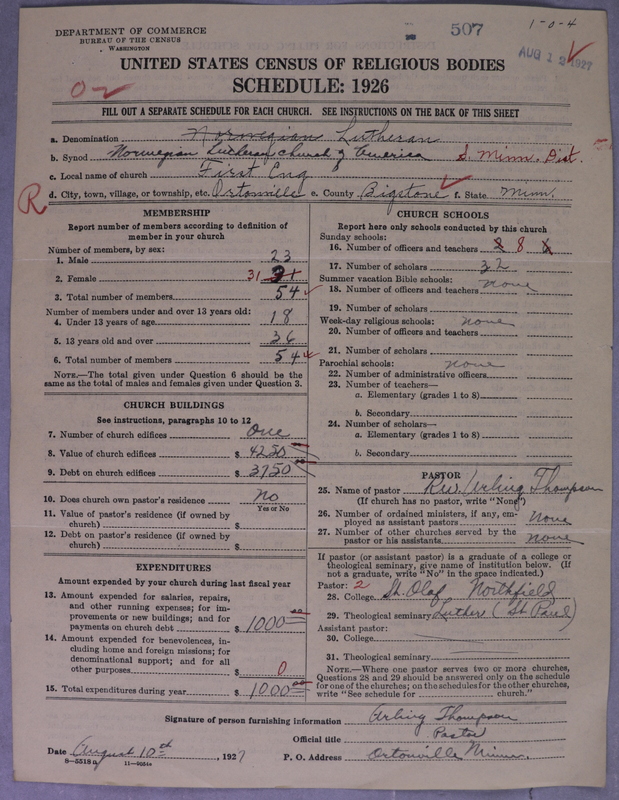 DEPARTMENT OF COMMERCE
BUREAU OF THE CENSUS
WASHINGTON
507
1-0-4
AUG 12 1927
UNITED STATES CENSUS OF RELIGIOUS BODIES
SCHEDULE: 1926
FILL OUT A SEPARATE SCHEDULE FOR EACH CHURCH. SEE INSTRUCTIONS ON THE BACK OF THIS SHEET
a. Denomination Norwegian Lutheran
b. Synod Norwegian Lutheran Church of America S. Minn. Dist.
c. Local name of church First Eng
R
d. City, town, village, or township, etc. Ortonville e. County Bigstone f. State Minn.
MEMBERSHIP
Report number of members according to definition of
member in your church
Number of members, by sex:
1. Male 23
2. Female 31
3. Total number of members 54
Number of members under and over 13 years old:
4. Under 13 years of age 18
5. 13 years old and over 36
6. Total number of members 54
NOTE.—The total given under Question 6 should be the
same as the total of males and females given under Question 3.
CHURCH BUILDINGS
See instructions, paragraphs 10 to 12
7. Number of church edifices One
8. Value of church edifices $ 4250
9. Debt on church edifices $ 3750
10. Does church own pastor's residence No
Yes or No
11. Value of pastor's residence (if owned by
church) $
12. Debt on pastor's residence (if owned by
church) $
EXPENDITURES
Amount expended by your church during last fiscal year
13. Amount expended for salaries, repairs,
and other running expenses; for im-
provements or new buildings; and for
payments on church debt $ 1000 00
14. Amount expended for benevolences, in-
cluding home and foreign missions; for
denominational support; and for all
other purposes $ 0
15. Total expenditures during year $ 1000 00
CHURCH SCHOOLS
Report here only schools conducted by this church
Sunday schools:
16. Number of officers and teachers 8
17. Number of scholars 32
Summer vacation Bible schools:
18. Number of officers and teachers none
19. Number of scholars
Week-day religious schools: none
20. Number of officers and teachers
21. Number of scholars
Parochial schools: none
22. Number of administrative officers
23. Number of teachers—
a. Elementary (grades 1 to 8)
b. Secondary
24. Number of scholars—
a. Elementary (grades 1 to 8)
b. Secondary
PASTOR
25. Name of pastor Rev. Arling Thompson
(If church has no pastor, write "None")
26. Number of ordained ministers, if any, em-
ployed as assistant pastors none
27. Number of other churches served by the
pastor or his assistants none
If pastor (or assistant pastor) is a graduate of a college or
theological seminary, give name of institution below. (If
not a graduate, write "No" in the space indicated.)
Pastor: 2
28. College St. Olaf Northfield
29. Theological seminary Luther (St Paul)
Assistant pastor:
30. College
31. Theological seminary
NOTE.—Where one pastor serves two or more churches,
Questions 28 and 29 should be answered only on the schedule
for one of the churches; on the schedules for the other churches,
write "See schedule for church."
Signature of person furnishing information Arling Thompson
Official title Pastor
Date August 10th, 1927 P. O. Address Ortonville Minn.
8-5518a 11-9054a